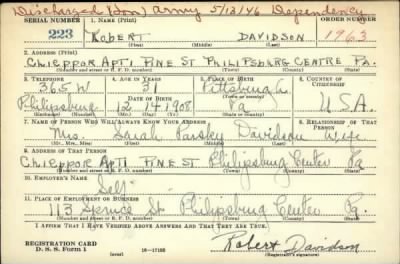 Discharged (Hon) Army 5/13/46 Dependency
SERIAL NUMBER 1. NAME (Print) ORDER NUMBER
223 ROBERT DAVIDSON 1963
(First) (Middle) (Last)
2. ADDRESS (Print)
APT 1 PINE ST PHILIPSBURG CENTRE PA.
(Number and street or R. F. D. number) (Town) (County) (State)
3. TELEPHONE 4. AGE IN YEARS 5. PLACE OF BIRTH 6. COUNTRY OF CITIZENSHIP
365 W 31 Pittsburgh
Philipsburg DATE OF BIRTH (Town or county)
12 14 1908 Pa U.S.A.
(Exchange) (Number) (Mo.) (Day) (Yr.) (State or country)
7. NAME OF PERSON WHO WILL ALWAYS KNOW YOUR ADDRESS 8. RELATIONSHIP OF THAT PERSON
Mrs. Sarah Davidson wife
(Mr., Mrs., Miss) (First) (Middle) (Last)
9. ADDRESS OF THAT PERSON
Apt 1 PINE ST Philipsburg Center Pa
(Number and street or R. F. D. number) (Town) (County) (State)
10. EMPLOYER'S NAME
Self
11. PLACE OF EMPLOYMENT OR BUSINESS
113 Spruce St Philipsburg Center Pa.
(Number and street or R. F. D. number) (Town) (County) (State)
I AFFIRM THAT I HAVE VERIFIED ABOVE ANSWERS AND THAT THEY ARE TRUE.
REGISTRATION CARD
D. S. S. Form 1 (over) 16—17105 Robert Davidson
(Registrant's signature)